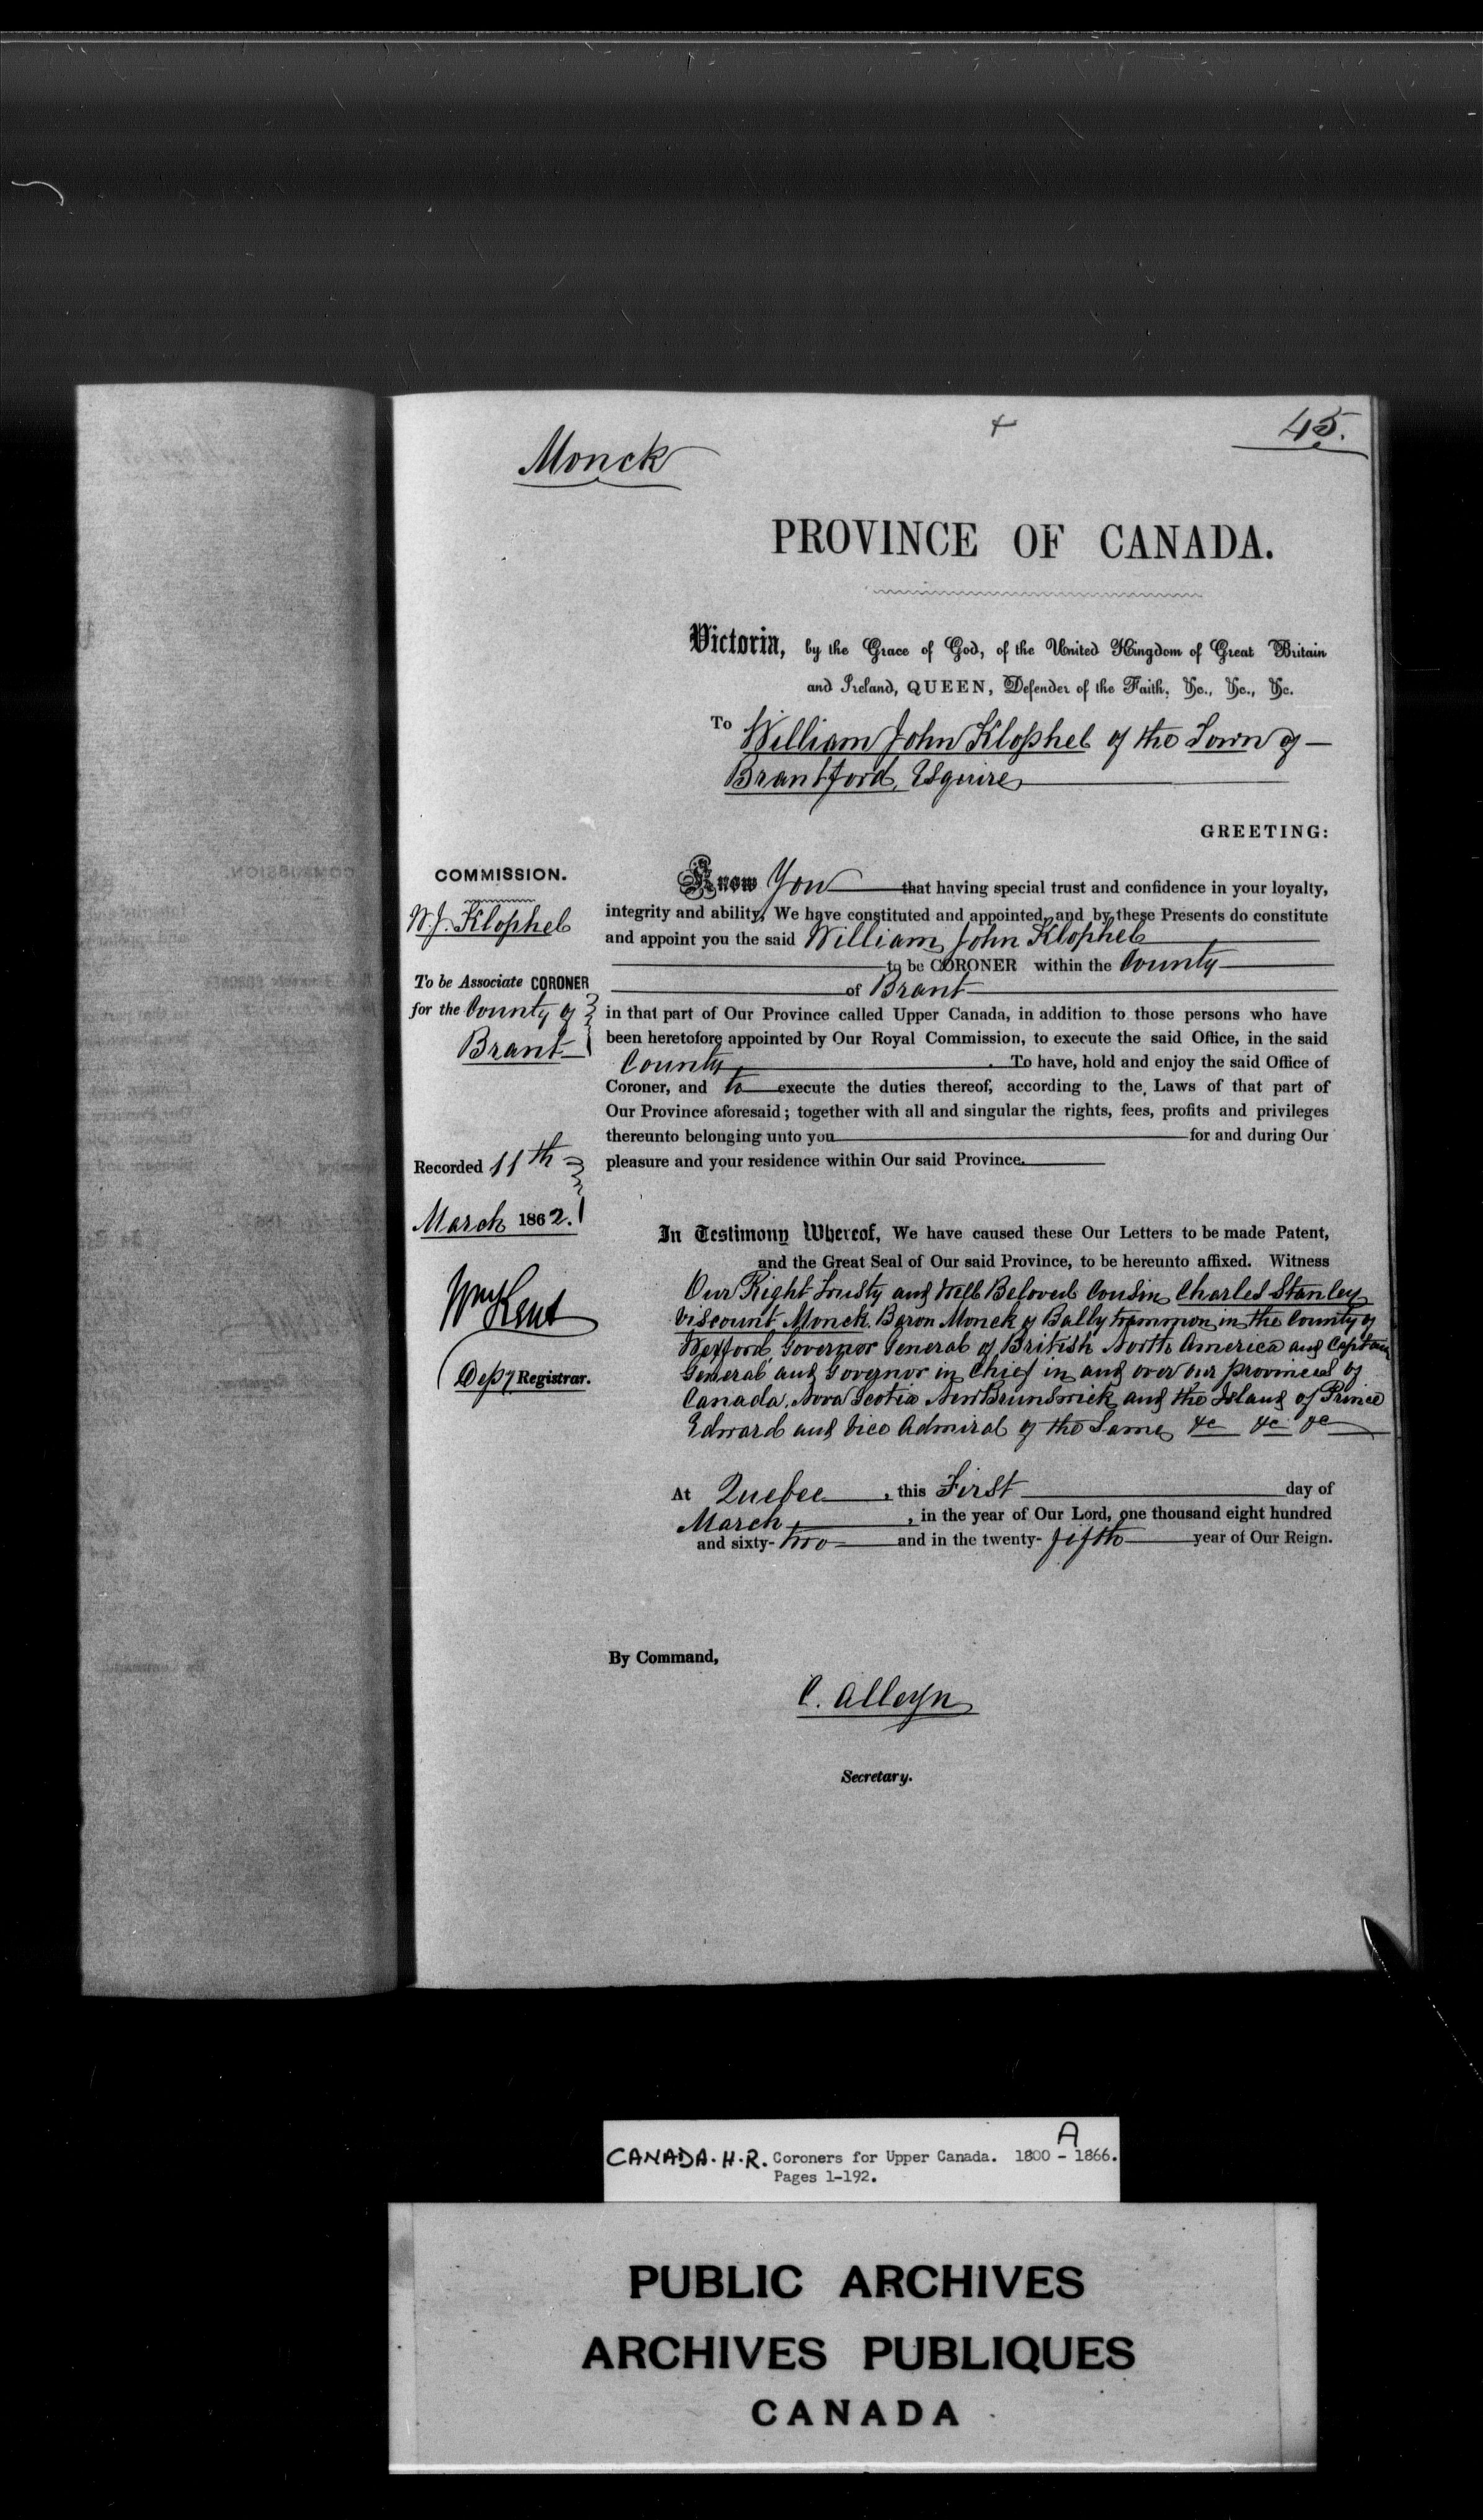 45.
Monck
PROVINCE OF CANADA.
Victoria, by the Grace of God, of the United Kingdom of Great Britain
and Ireland, QUEEN, Defender of the Faith, &c., &c., &c.
To William John Klophel of the Town of
Brantford, Esquire
GREETING:
COMMISSION.
W. J. Klophel
To be Associate CORONER
for the County of
Brant
Recorded 11th
March 1862.
Wm Kent
Depy Registrar.
Know You that having special trust and confidence in your loyalty,
integrity and ability, We have constituted and appointed, and by these Presents do constitute
and appoint you the said William John Klophel
to be CORONER within the County
of Brant
in that part of Our Province called Upper Canada, in addition to those persons who have
been heretofore appointed by Our Royal Commission, to execute the said Office, in the said
County. To have, hold and enjoy the said Office of
Coroner, and to execute the duties thereof, according to the Laws of that part of
Our Province aforesaid; together with all and singular the rights, fees, profits and privileges
thereunto belonging unto you for and during Our
pleasure and your residence within Our said Province.
In Testimony Whereof, We have caused these Our Letters to be made Patent,
and the Great Seal of Our said Province, to be hereunto affixed. Witness
Our Right Trusty and Well Beloved Cousin Charles Stanley
Viscount Monck. Baron Monck of Ballytrammon in the County of
Wexford Governor General of British North America and Captain
General and Governor in Chief in and over our provinces of
Canada, Nova Scotia New Brunswick and the Island of Prince
Edward and Vice Admiral of the Same &c &c &c
At Quebec, this First day of
March, in the year of Our Lord, one thousand eight hundred
and sixty-two and in the twenty-fifth year of Our Reign.
By Command,
C. Alleyn
Secretary.
CANADA. H. R. Coroners for Upper Canada. 1800 A - 1866.
Pages 1-192.
PUBLIC ARCHIVES
ARCHIVES PUBLIQUES
CANADA